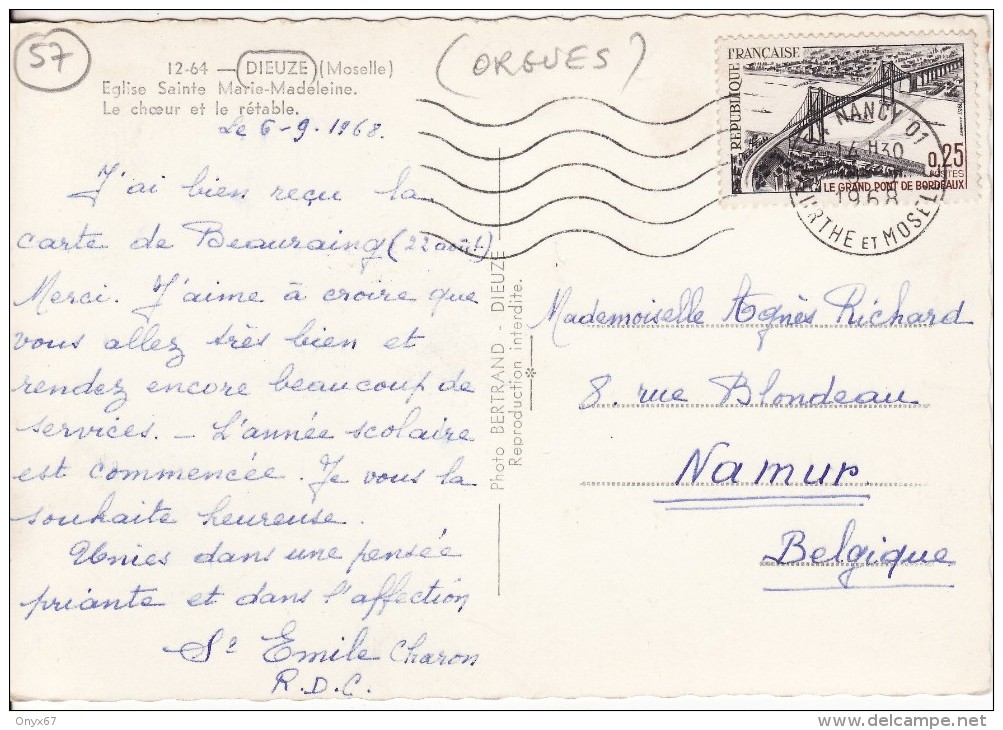 57
12-64 — DIEUZE (Moselle)
Eglise Sainte Marie-Madeleine.
Le chœur et le rétable.
(ORGUES)
Le 6-9-1968.
J'ai bien reçu la
carte de Beauraing (22 août)
Merci. J'aime à croire que
vous allez très bien et
rendez encore beaucoup de
services. — L'année scolaire
est commencée. Je vous la
souhaite heureuse.
Unies dans une pensée
priante et dans l'affection
Sr Emile Charon
R.D.C.
Photo BERTRAND - DIEUZE
Reproduction interdite.
REPUBLIQUE FRANÇAISE
0,25
POSTES
LE GRAND PONT DE BORDEAUX
NANCY 01
14 H30
1968
URTHE ET MOSEL
Mademoiselle Agnès Richard
8. rue Blondeau
Namur.
Belgique
Onyx67
delcampe.net